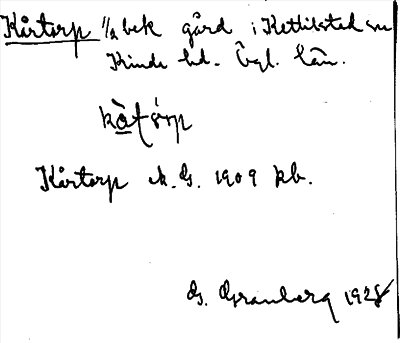 Kårtorp 1/2 bek gård i Kettilstad sn
Kinda hd. Ögl. län.
Kårtorp A. G. 1909 kb.
G. Granberg 1928